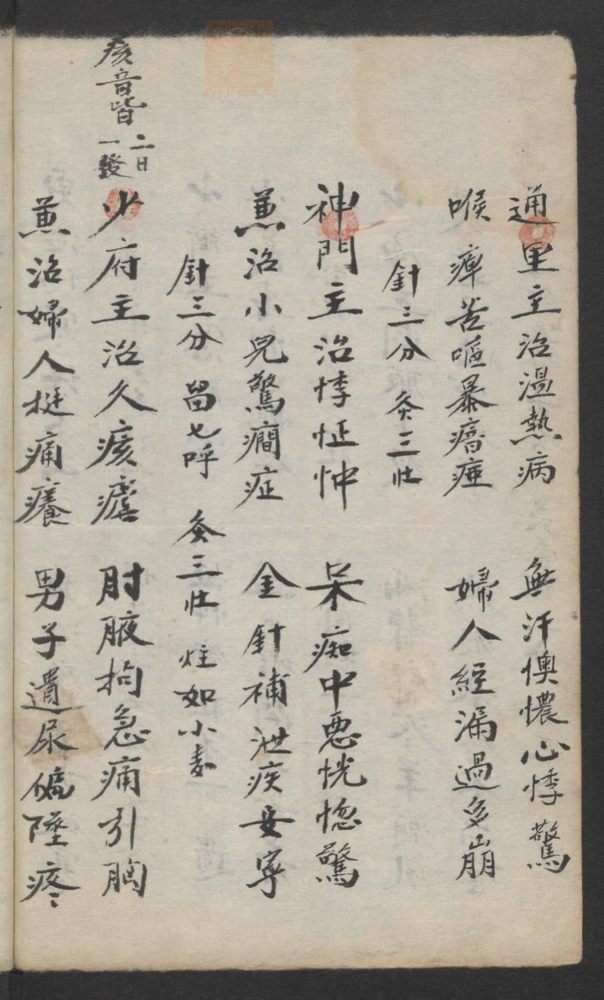 通里主治溫熱病 無汗懊憹心悸驚
喉痺苦嘔暴瘖瘂 婦人經漏過多崩
針三分 灸三壯
神門主治悸怔忡 呆痴中惡恍惚驚
兼治小兒驚癇症 金針補泄疾安寧
針三分 畱七呼 灸三壯 炷如小麦
少府主治久痎瘧 肘腋拘急痛引胸
兼治婦人挺痛癢 男子遺尿偏墜疼
痎音皆 二日一發